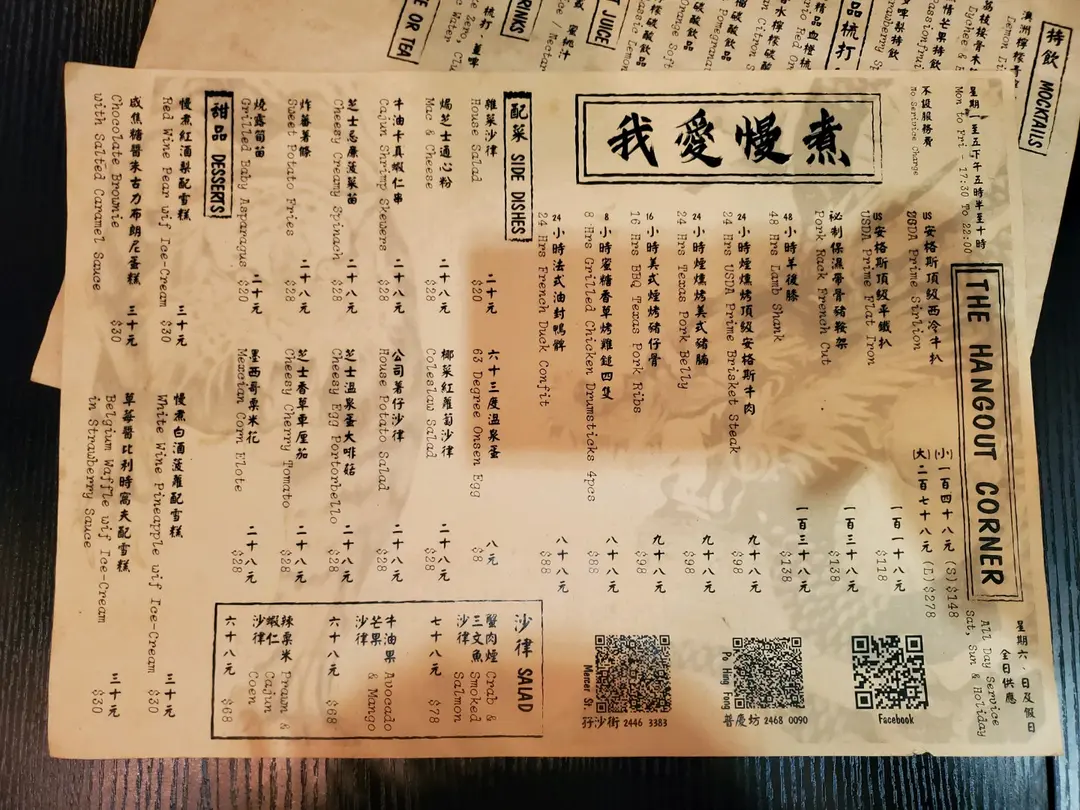 特飲 MOCKTAILS
THE HANGOUT CORNER
星期一至五下午五時半至十時
Mon to Fri - 17:30 To 22:00
不設服務費
No Serivice Charge
星期六、日及假日
全日供應
All Day Service
Sat, Sun & Holiday
我愛慢煮
US安格斯頂級西冷牛扒 (小)一百四十八元 (S)$148
USDA Prime Sirlion (大)二百七十八元 (L)$278
US安格斯頂級平鐵扒 一百一十八元
USDA Prime Flat Iron $118
秘制保濕帶骨豬鞍架 一百三十八元
Pork Rack French Cut $138
48小時羊後膝 一百三十八元
48 Hrs Lamb Shank $138
24小時煙燻烤頂級安格斯牛肉 九十八元
24 Hrs USDA Prime Brisket Steak $98
24小時煙燻烤美式豬腩 九十八元
24 Hrs Texas Pork Belly $98
16小時美式煙烤豬仔骨 九十八元
16 Hrs BBQ Texas Pork Ribs $98
8小時蜜糖香草烤雞鎚四隻 八十八元
8 Hrs Grilled Chicken Drumsticks 4pcs $88
24小時法式油封鴨髀 八十八元
24 Hrs French Duck Confit $88
Facebook
Po Hing Fong
普慶坊 2468 0090
Mercer St.
孖沙街 2446 3383
配菜 SIDE DISHES
雜菜沙律 二十元
House Salad $20
六十三度溫泉蛋 八元
63 Degree Onsen Egg $8
焗芝士通心粉 二十八元
Mac & Cheese $28
椰菜紅蘿蔔沙律 二十八元
Coleslaw Salad $28
牛油卡真蝦仁串 二十八元
Cajun Shrimp Skewers $28
公司薯仔沙律 二十八元
House Potato Salad $28
芝士忌廉菠菜苗 二十八元
Cheesy Creamy Spinach $28
芝士溫泉蛋大啡菇 二十八元
Cheesy Egg Portorbello $28
炸蕃薯條 二十八元
Sweet Potato Fries $28
芝士香草車厘茄 二十八元
Cheesy Cherry Tomato $28
燒露筍苗 二十元
Grilled Baby Asparagus $20
墨西哥粟米花 二十八元
Mexcian Corn Elote $28
沙律 SALAD
蟹肉煙三文魚沙律 七十八元
Crab & Smoked Salmon $78
牛油果芒果沙律 六十八元
Avocado & Mango $68
辣粟米蝦仁沙律 六十八元
Prawn & Cajun Coen $68
甜品 DESSERTS
慢煮紅酒梨配雪糕 三十元
Red Wine Pear wif Ice-Cream $30
慢煮白酒菠蘿配雪糕 三十元
White Wine Pineapple wif Ice-Cream $30
咸焦糖醬朱古力布朗尼蛋糕 三十元
Chocolate Brownie
with Salted Caramel Sauce $30
草莓醬比利時窩夫配雪糕 三十元
Belgium Waffle wif Ice-Cream
in Strawberry Sauce $30